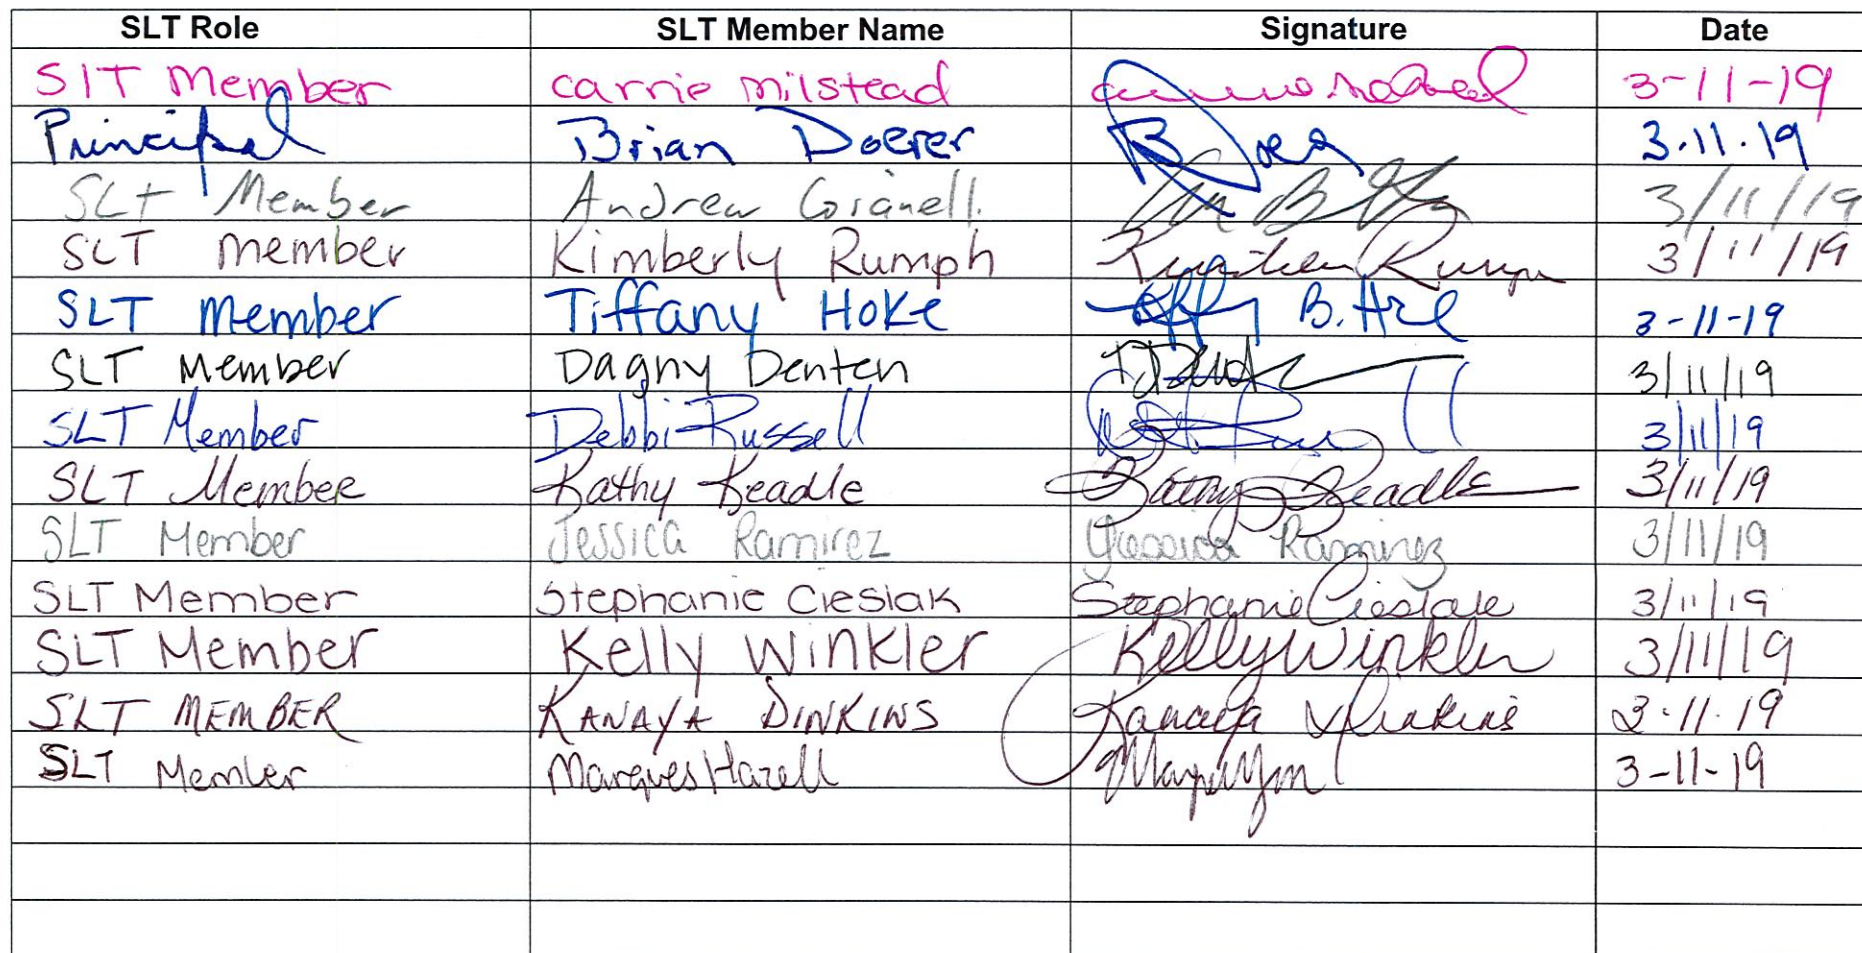 SLT Role SLT Member Name Signature Date
SIT Member carrie milstead 3-11-19
Principal Brian Doerer 3.11.19
SLT Member Andrew 3/11/19
SLT member Kimberly Rumph 3/11/19
SLT Member Tiffany Hoke B. 3-11-19
SLT Member Dagny Denten 3/11/19
SLT Member Debbi Russell 3/11/19
SLT Member Kathy Keadle Kathy Keadle 3/11/19
SLT Member Jessica Ramirez Jessica Ramirez 3/11/19
SLT Member Stephanie Cieslak Stephanie Cieslak 3/11/19
SLT Member Kelly Winkler Kelly Winkler 3/11/19
SLT MEMBER KANAYA DINKINS Kanaya Dinkins 3.11.19
SLT Member Marques Hazell 3-11-19